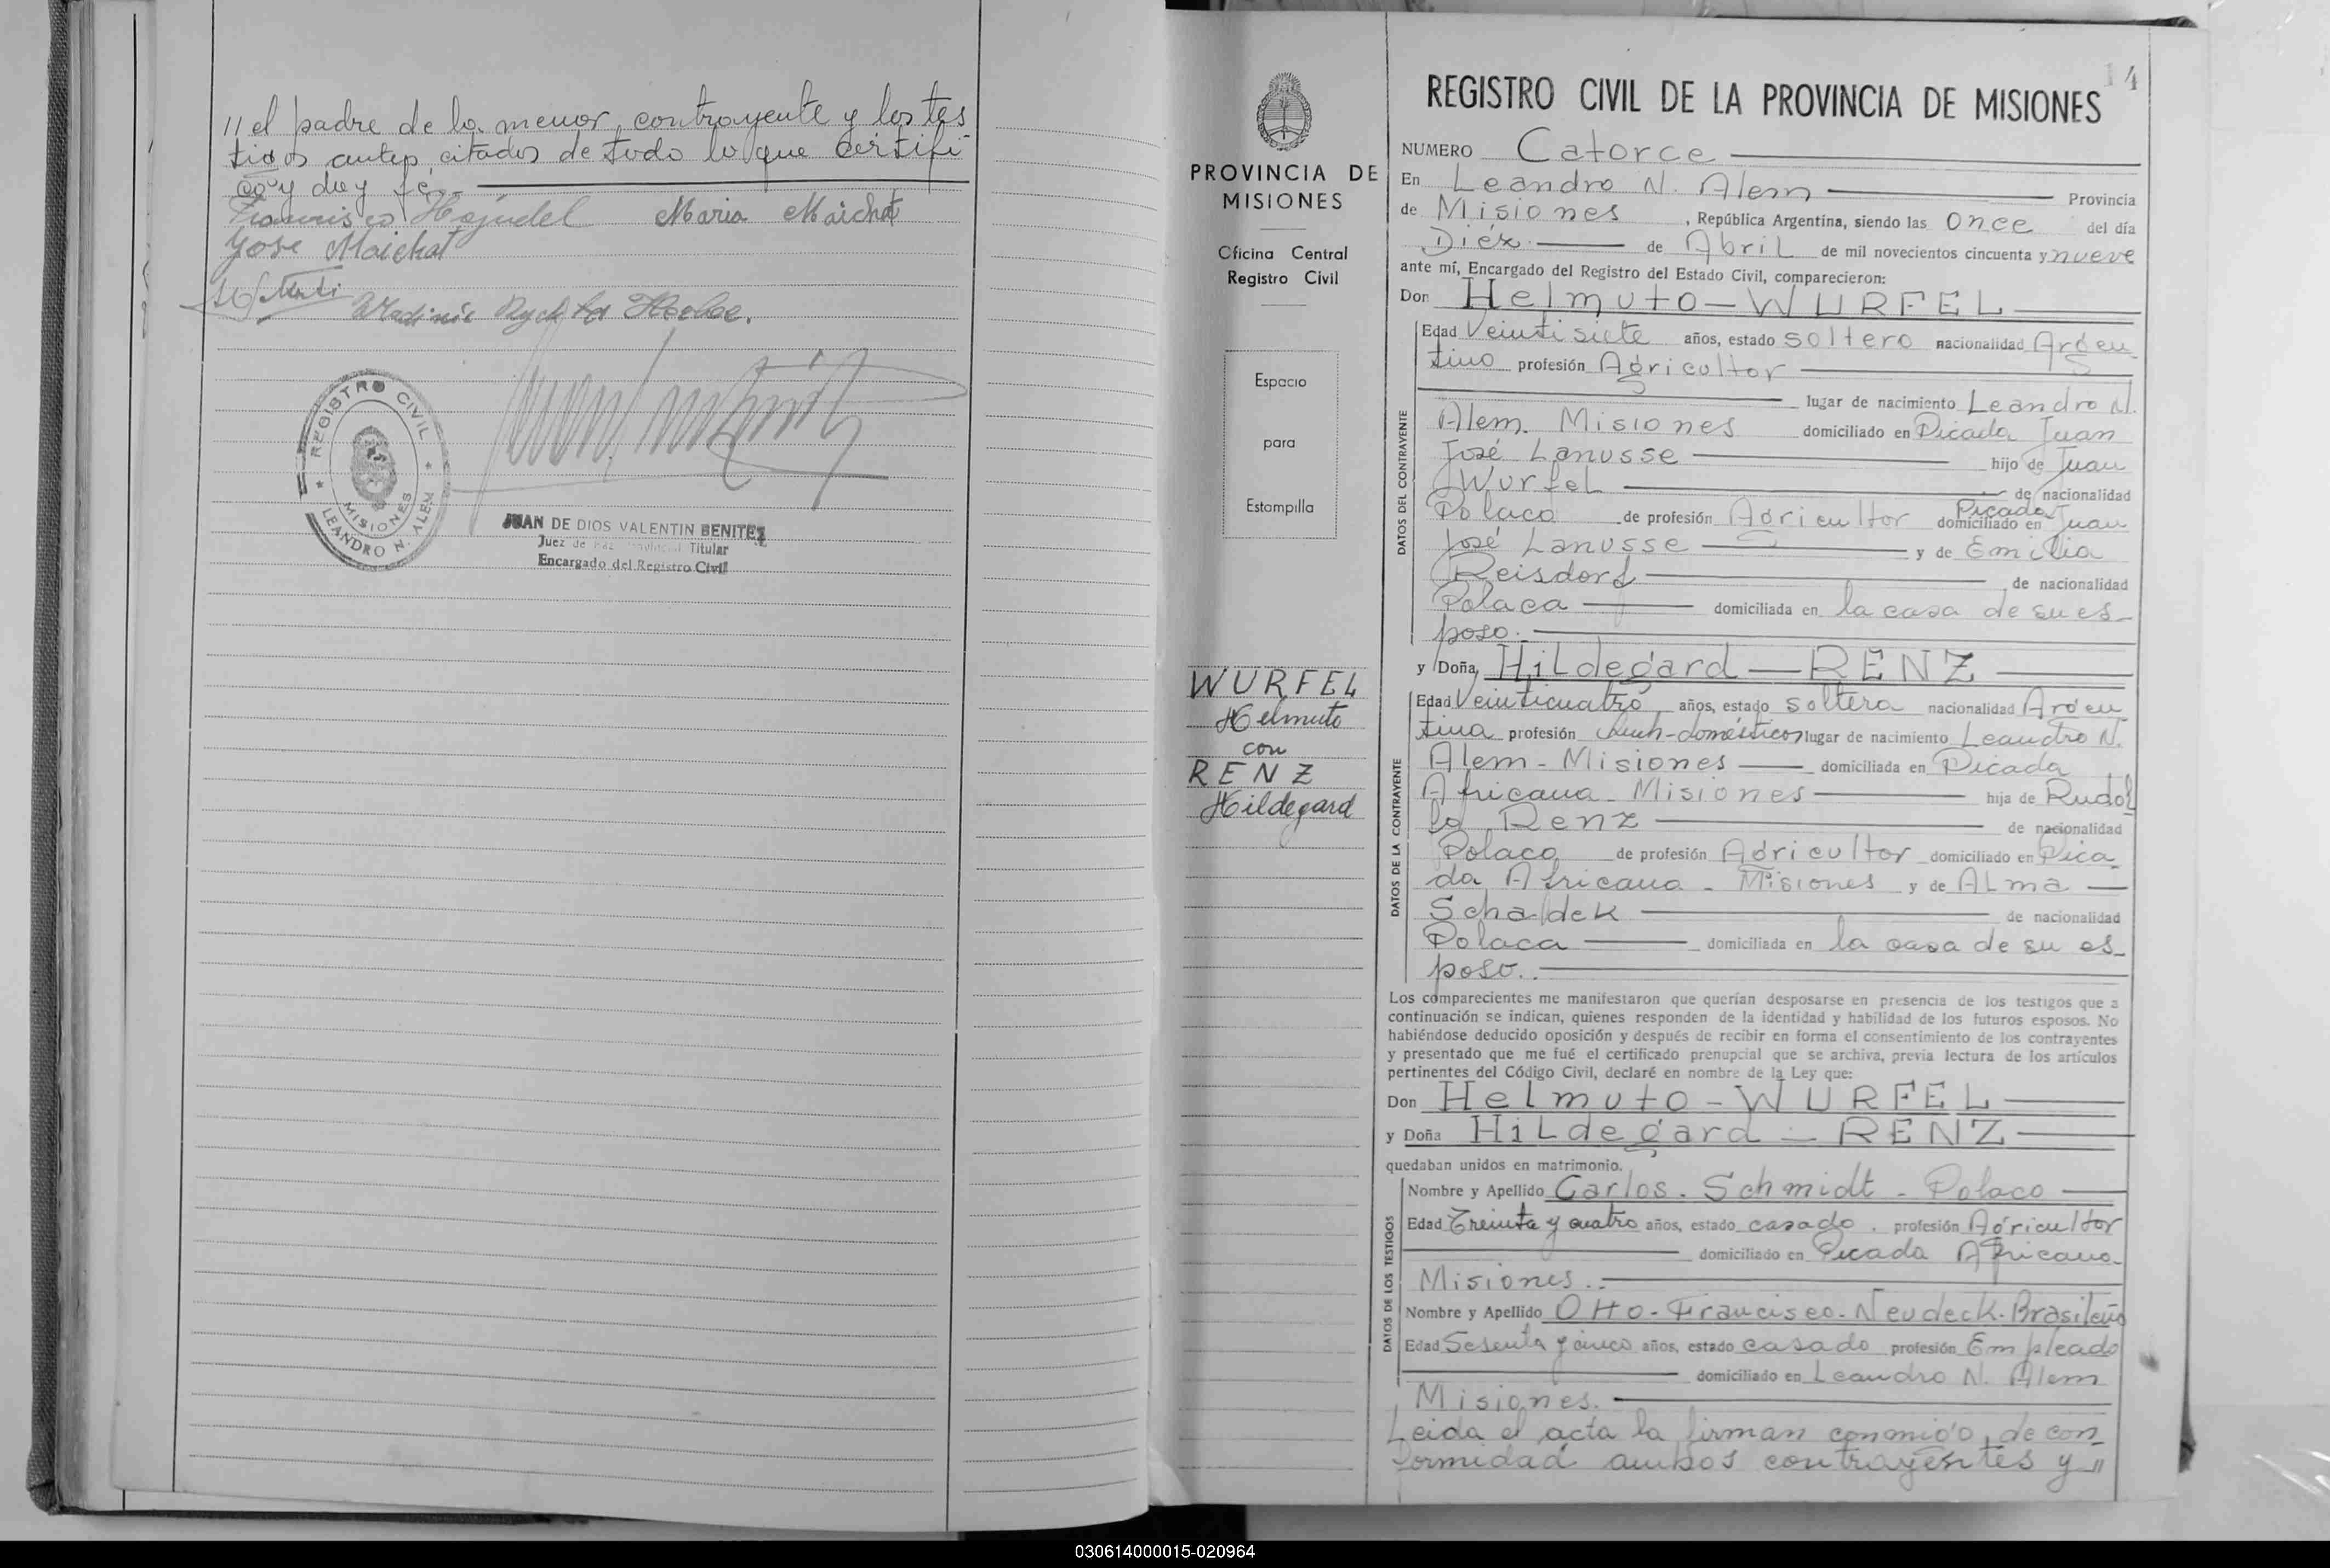 // el padre de la menor contrayente y los tes
tigos antes citados de todo lo que certifi
co y doy fé.-
Maria Maichat
Jose Maichat
REGISTRO CIVIL
MISIONES
LEANDRO N. ALEM
JUAN DE DIOS VALENTIN BENITEZ
Juez de Paz Titular
Encargado del Registro Civil
14
PROVINCIA DE
MISIONES
Oficina Central
Registro Civil
Espacio
para
Estampilla
WURFEL
Helmuto
con
RENZ
Hildegard
REGISTRO CIVIL DE LA PROVINCIA DE MISIONES
NUMERO Catorce
En Leandro N. Alem Provincia
de Misiones, República Argentina, siendo las Once del día
Diéz de Abril de mil novecientos cincuenta y nueve
ante mí, Encargado del Registro del Estado Civil, comparecieron:
Don Helmuto - WURFEL
DATOS DEL CONTRAYENTE
Edad Veintisiete años, estado soltero nacionalidad Argen
tino profesión Agricultor
lugar de nacimiento Leandro N.
Alem. Misiones domiciliado en Picada Juan
José Lanusse hijo de Juan
Wurfel de nacionalidad
Polaco de profesión Agricultor domiciliado en Picada Juan
José Lanusse y de Emilia
Reisdorf de nacionalidad
Polaca domiciliada en la casa de su es-
poso.-
y Doña Hildegard - RENZ
DATOS DE LA CONTRAYENTE
Edad Veinticuatro años, estado soltera nacionalidad Argen
tina profesión Queh-domésticos lugar de nacimiento Leandro N.
Alem - Misiones domiciliada en Picada
Africana - Misiones hija de Rudol
fo Renz de nacionalidad
Polaco de profesión Agricultor domiciliado en Pica
da Africana - Misiones y de Alma
Schaldek de nacionalidad
Polaca domiciliada en la casa de su es-
poso.
Los comparecientes me manifestaron que querían desposarse en presencia de los testigos que a
continuación se indican, quienes responden de la identidad y habilidad de los futuros esposos. No
habiéndose deducido oposición y después de recibir en forma el consentimiento de los contrayentes
y presentado que me fué el certificado prenupcial que se archiva, previa lectura de los artículos
pertinentes del Código Civil, declaré en nombre de la Ley que:
Don Helmuto - WURFEL
y Doña Hildegard - RENZ
quedaban unidos en matrimonio.
DATOS DE LOS TESTIGOS
Nombre y Apellido Carlos - Schmidt - Polaco
Edad Treinta y cuatro años, estado casado. profesión Agricultor
domiciliado en Picada Africana
Misiones.-
Nombre y Apellido Otto - Francisco - Neudeck - Brasileño
Edad Sesenta y cinco años, estado casado profesión Empleado
domiciliado en Leandro N. Alem
Misiones.
Leida el acta la firman conmigo de con
formidad ambos contrayentes y //
030614000015-020964